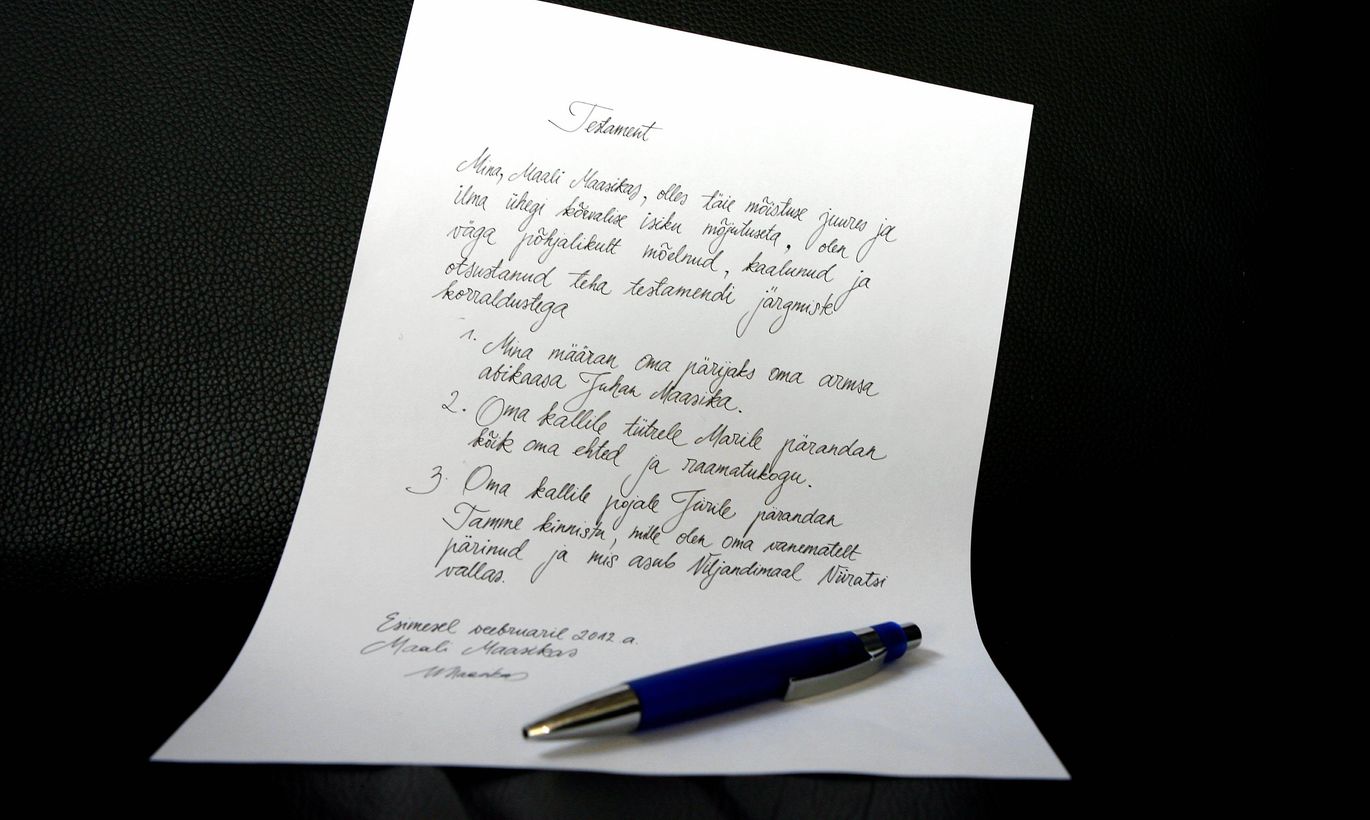 Testament
Mina, Maali Maasikas, olles täie mõistuse juures ja
ilma ühegi kõrvalise isiku mõjutuseta, olen
väga põhjalikult mõelnud, kaalunud ja
otsustanud teha testamendi järgmiste
korraldustega
1. Mina määran oma pärijaks oma armsa
abikaasa Juhan Maasika.
2. Oma kallile tütrele Marile pärandan
kõik oma ehted ja raamatukogu.
3. Oma kallile pojale Jürile pärandan
Tamme kinnistu, mille olen oma vanematelt
pärinud ja mis asub Viljandimaal Viiratsi
vallas.
Esimesel veebruaril 2012 a.
Maali Maasikas
MMaasikas